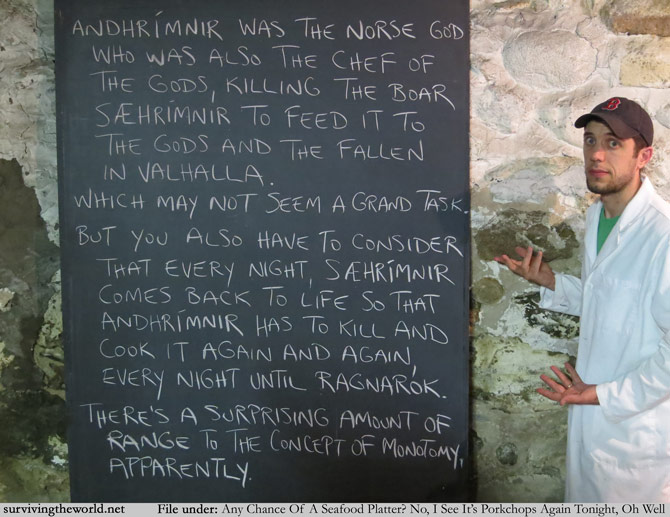 ANDHRÍMNIR WAS THE NORSE GOD
WHO WAS ALSO THE CHEF OF
THE GODS, KILLING THE BOAR
SÆHRÍMNIR TO FEED IT TO
THE GODS AND THE FALLEN
IN VALHALLA.
WHICH MAY NOT SEEM A GRAND TASK.
BUT YOU ALSO HAVE TO CONSIDER
THAT EVERY NIGHT, SÆHRÍMNIR
COMES BACK TO LIFE SO THAT
ANDHRÍMNIR HAS TO KILL AND
COOK IT AGAIN AND AGAIN,
EVERY NIGHT UNTIL RAGNARÓK.
THERE'S A SURPRISING AMOUNT OF
RANGE TO THE CONCEPT OF MONOTOMY,
APPARENTLY.
B
survivingtheworld.net File under: Any Chance Of A Seafood Platter? No, I See It's Porkchops Again Tonight, Oh Well